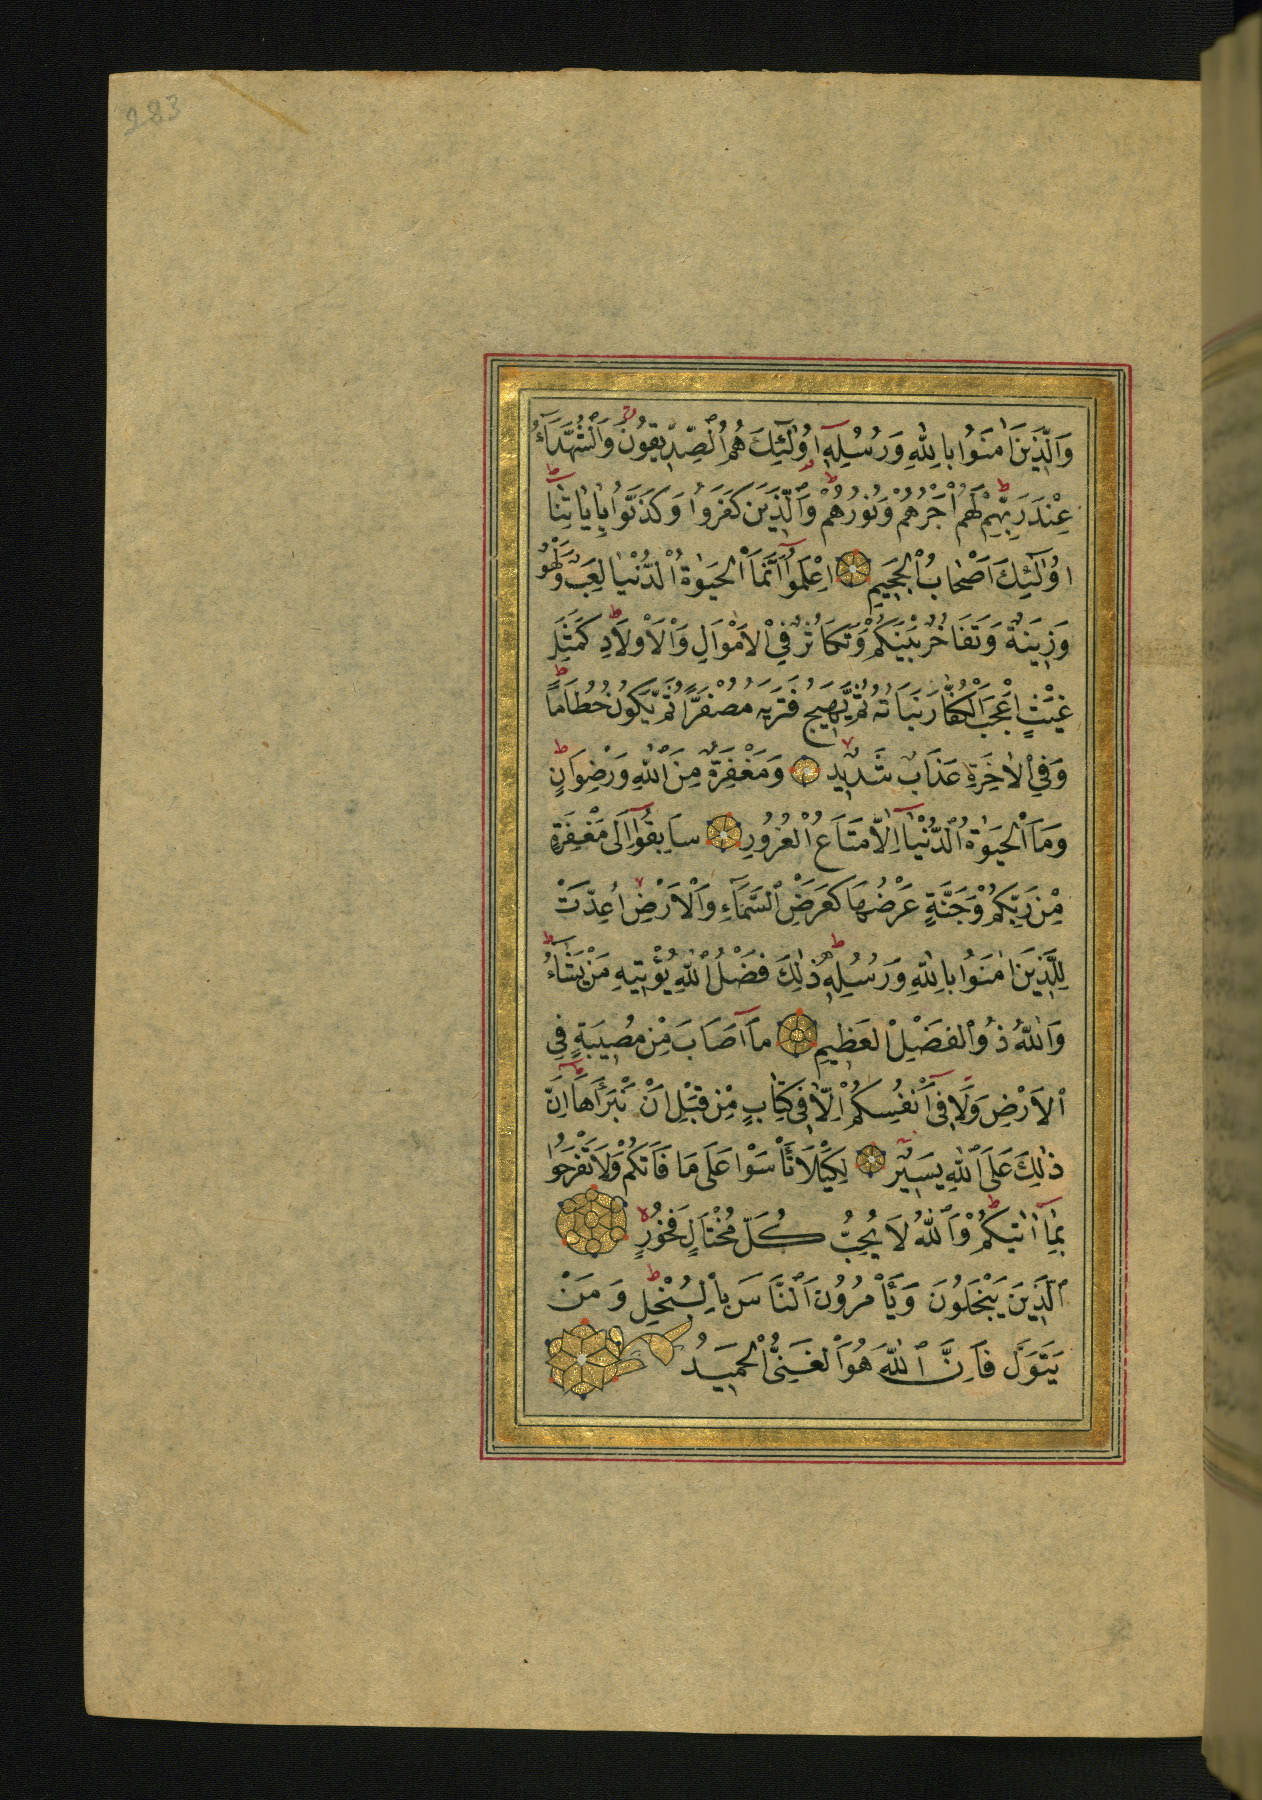 283
وَالَّذِينَ اٰمَنُوا بِاللّٰهِ وَرُسُلِهٖٓ اُولٰٓئِكَ هُمُ الصِّدِّيقُونَ وَالشُّهَدَٓاءُ
عِنْدَ رَبِّهِمْ لَهُمْ اَجْرُهُمْ وَنُورُهُمْ وَالَّذِينَ كَفَرُوا وَكَذَّبُوا بِاٰيَاتِنَٓا
اُولٰٓئِكَ اَصْحَابُ الْجَحِيمِ اِعْلَمُٓوا اَنَّمَا الْحَيٰوةُ الدُّنْيَا لَعِبٌ وَلَهْوٌ
وَزِينَةٌ وَتَفَاخُرٌ بَيْنَكُمْ وَتَكَاثُرٌ فِي الْاَمْوَالِ وَالْاَوْلَادِ كَمَثَلِ
غَيْثٍ اَعْجَبَ الْكُفَّارَ نَبَاتُهُ ثُمَّ يَهِيجُ فَتَرٰيهُ مُصْفَرًّا ثُمَّ يَكُونُ حُطَامًا
وَفِي الْاٰخِرَةِ عَذَابٌ شَدِيدٌ وَمَغْفِرَةٌ مِنَ اللّٰهِ وَرِضْوَانٌ
وَمَا الْحَيٰوةُ الدُّنْيَٓا اِلَّا مَتَاعُ الْغُرُورِ سَابِقُٓوا اِلٰى مَغْفِرَةٍ
مِنْ رَبِّكُمْ وَجَنَّةٍ عَرْضُهَا كَعَرْضِ السَّمَٓاءِ وَالْاَرْضِ اُعِدَّتْ
لِلَّذِينَ اٰمَنُوا بِاللّٰهِ وَرُسُلِهٖ ذٰلِكَ فَضْلُ اللّٰهِ يُؤْتِيهِ مَنْ يَشَٓاءُ
وَاللّٰهُ ذُو الْفَضْلِ الْعَظِيمِ مَٓا اَصَابَ مِنْ مُصِيبَةٍ فِي
الْاَرْضِ وَلَا فِٓي اَنْفُسِكُمْ اِلَّا فِي كِتَابٍ مِنْ قَبْلِ اَنْ نَبْرَاَهَا اِنَّ
ذٰلِكَ عَلَى اللّٰهِ يَسِيرٌ لِكَيْلَا تَأْسَوْا عَلٰى مَا فَاتَكُمْ وَلَا تَفْرَحُوا
بِمَٓا اٰتٰيكُمْ وَاللّٰهُ لَا يُحِبُّ كُلَّ مُخْتَالٍ فَخُورٍ
الَّذِينَ يَبْخَلُونَ وَيَأْمُرُونَ النَّاسَ بِالْبُخْلِ وَمَنْ
يَتَوَلَّ فَاِنَّ اللّٰهَ هُوَ الْغَنِيُّ الْحَمِيدُ